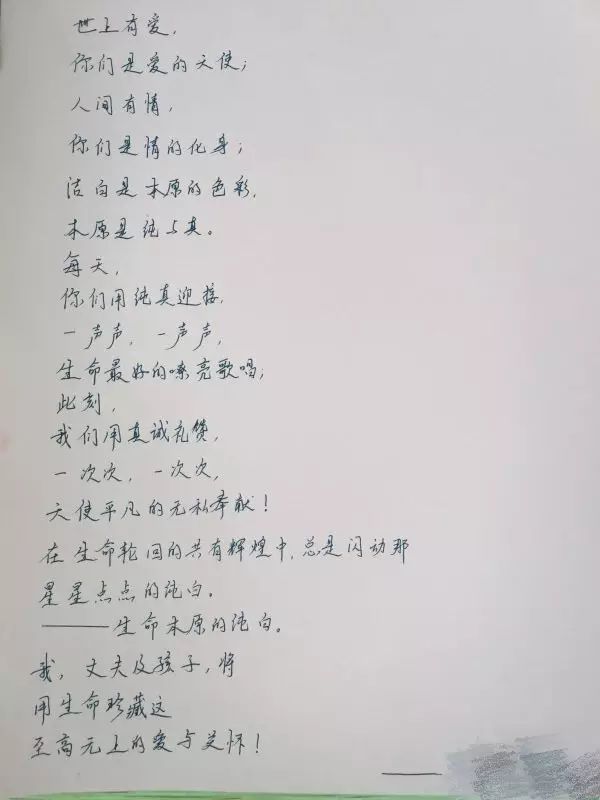 世上有爱，
你们是爱的天使；
人间有情，
你们是情的化身；
洁白是本原的色彩，
本原是纯与真。
每天，
你们用纯真迎接，
一声声，一声声，
生命最好的嘹亮歌唱；
此刻，
我们用真诚礼赞，
一次次，一次次，
天使平凡的无私奉献！
在生命轮回的共有辉煌中，总是闪动那
星星点点的纯白。
——生命本原的纯白。
我，丈夫及孩子，将
用生命珍藏这
至高无上的爱与关怀！